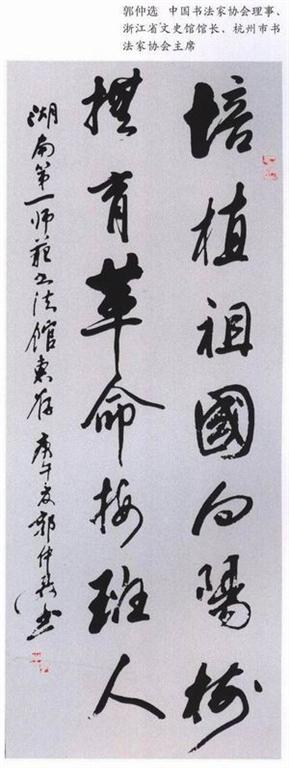 郭仲选 中国书法家协会理事、
浙江省文史馆馆长、杭州市书
法家协会主席
培植祖國向陽樹
撫育革命接班人
湖南第一師範书法館惠存 庚午夏郭仲選书